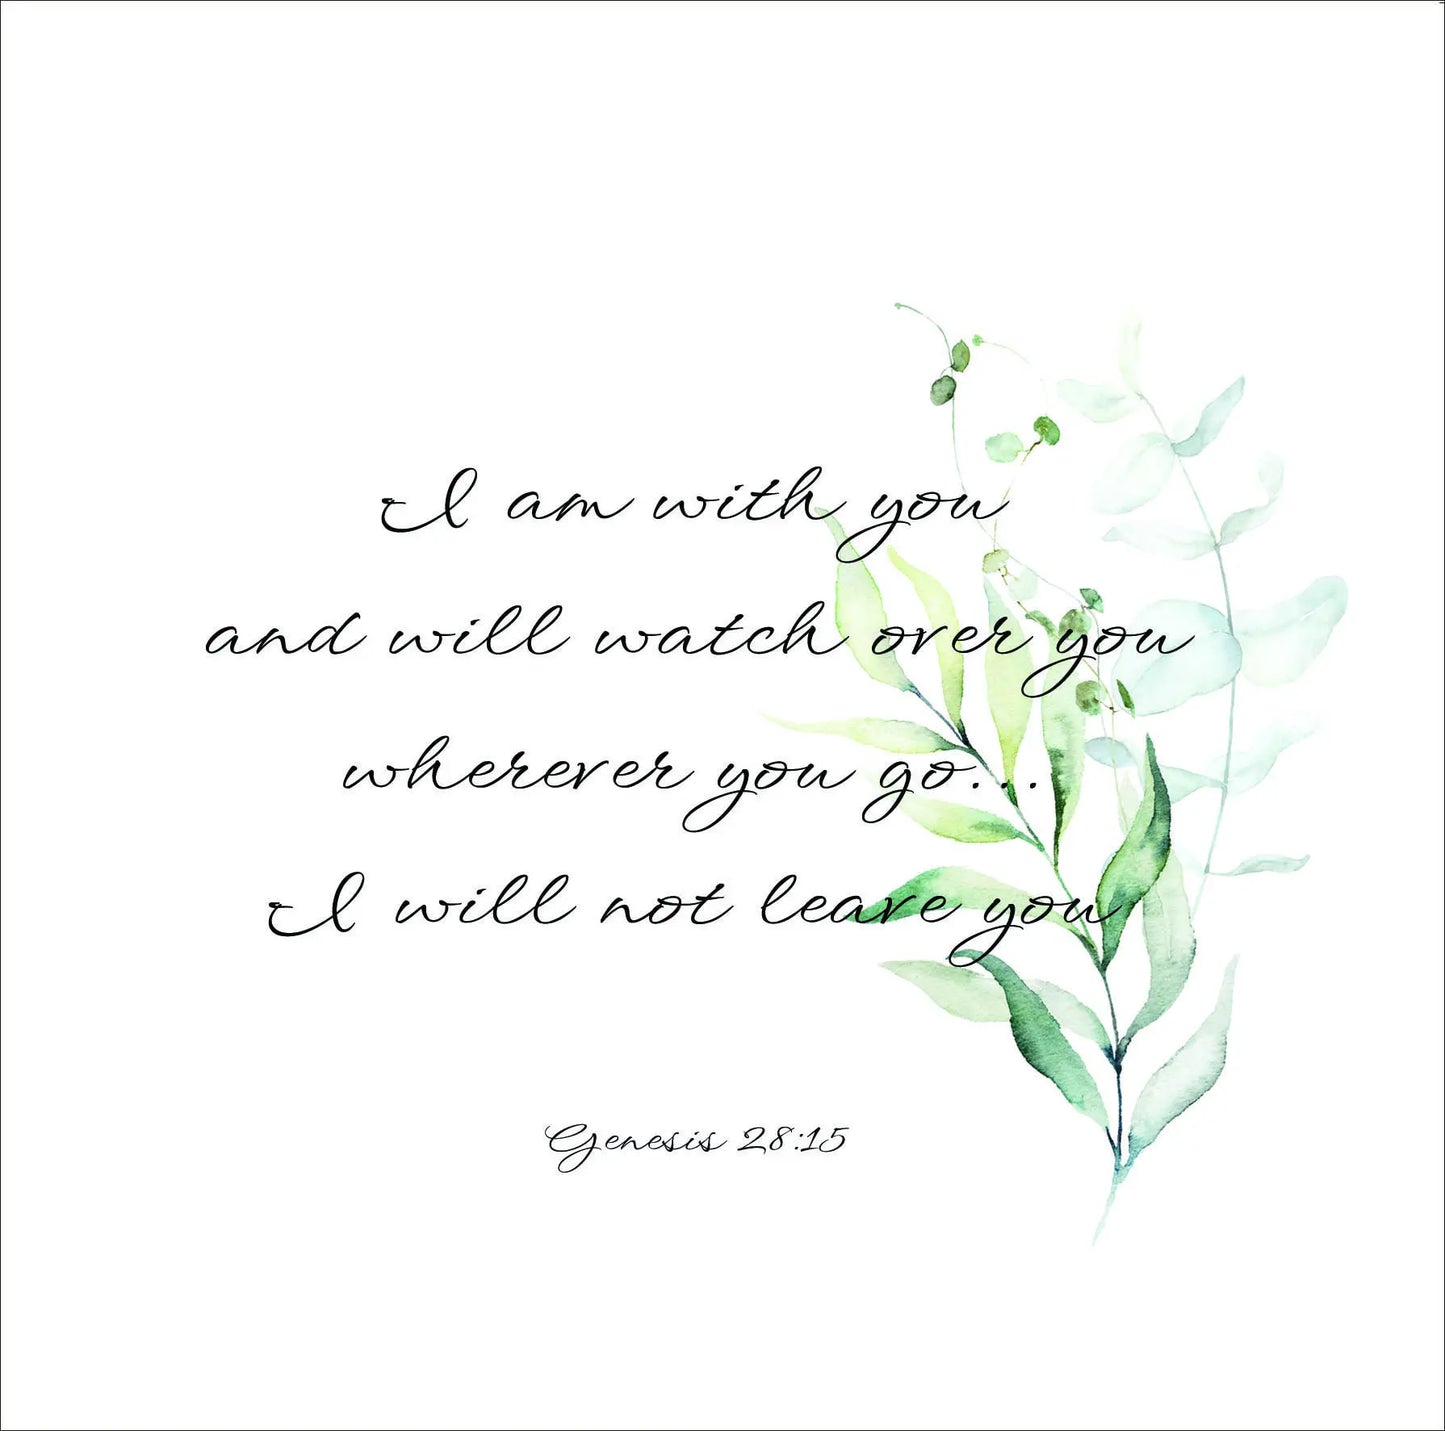 I am with you
and will watch over you
wherever you go...
I will not leave you
Genesis 28:15